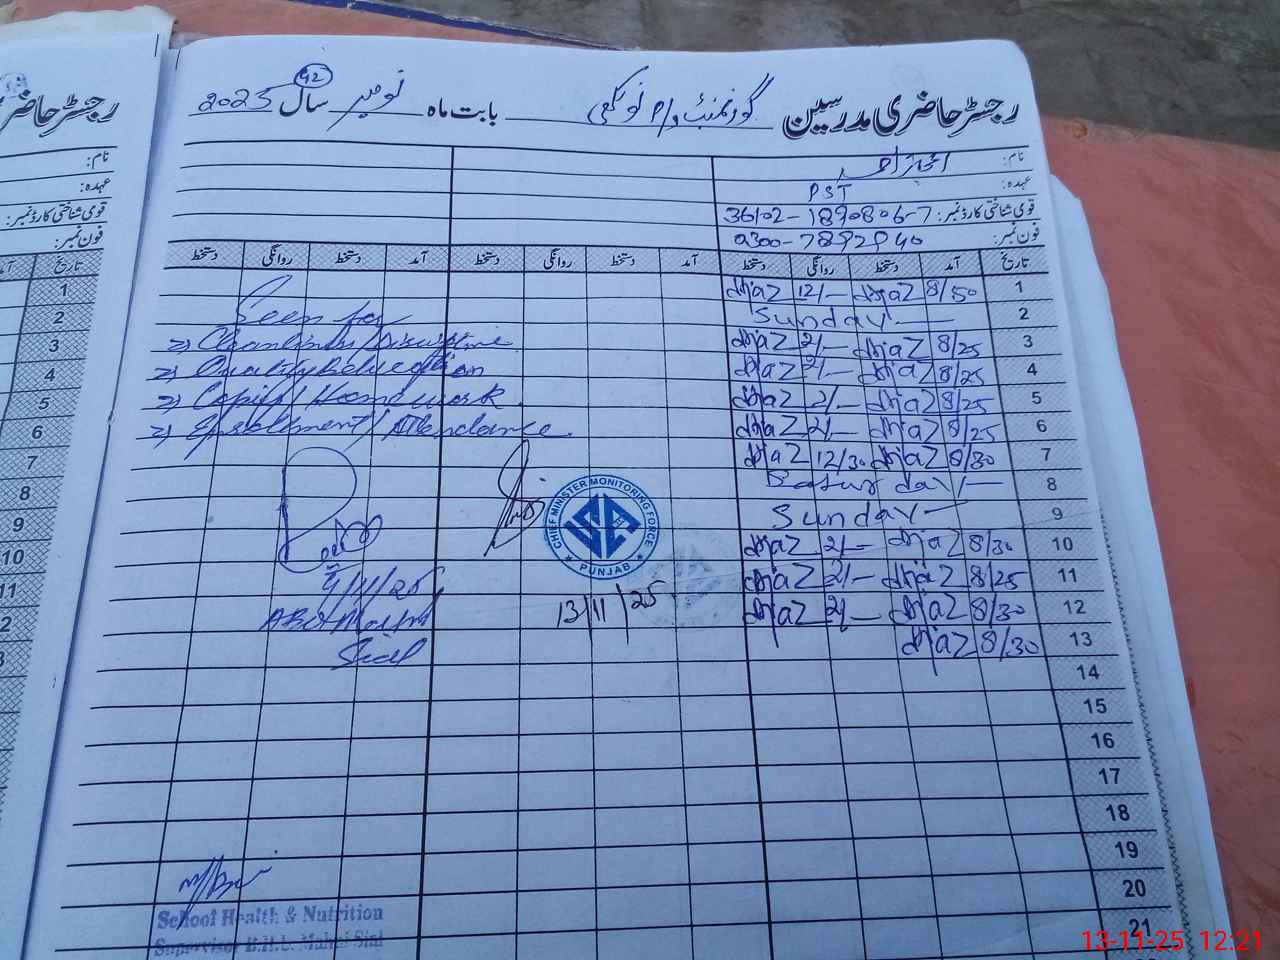 رجسٹر حاضری مدرسین گورنمنٹ بابت ماہ نومبر سال 2025
42
نام:
عہدہ: PST
قومی شناختی کارڈ نمبر: 36102-1890806-7
فون نمبر: 0300-7892940
تاریخ آمد دستخط روانگی دستخط آمد دستخط روانگی دستخط آمد دستخط روانگی دستخط
1 8/50 Ijaz 12/- Ijaz
2 Sunday
3 8/25 Ijaz 2/- Ijaz
4 8/25 Ijaz 2/- Ijaz
5 8/25 Ijaz 2/- Ijaz
6 8/25 Ijaz 2/- Ijaz
7 8/30 Ijaz 12/30 Ijaz
8
9 Sunday
10 8/30 Ijaz 2/- Ijaz
11 8/25 Ijaz 2/- Ijaz
12 8/30 Ijaz 2/- Ijaz
13 8/30 Ijaz
14
15
16
17
18
19
20
21
Seen for
=> Cleanliness / Discipline
=> Quality Education
=> Copies / Home work
=> Enrolment / Attendance
CHIEF MINISTER MONITORING FORCE
PUNJAB
13/11/25
/11/25
Sial
School Health & Nutrition
Supervisor B.H.U. Mahni Sial
رجسٹر حاضری
نام:
عہدہ:
قومی شناختی کارڈ نمبر:
فون نمبر:
تاریخ
1
2
3
4
5
6
7
8
9
10
11
13-11-25 12:21